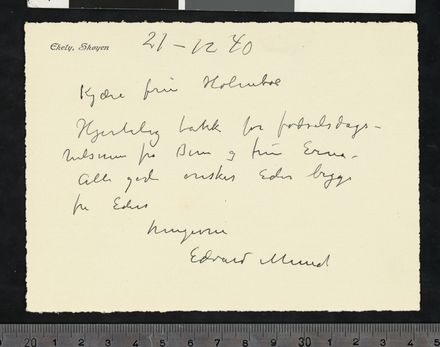 Ekely, Skøyen
21-12 40
Kjære frü Holmboe
Hjertelig takk for fødselsdags-
hilsenen fra Dem og frü Erna.
Alle gode ønsker Eder begge
fra Eders
hengivne
Edvard Munch
20 1 2 3 4 5 6 7 8 9 30 1 2 3 4 5